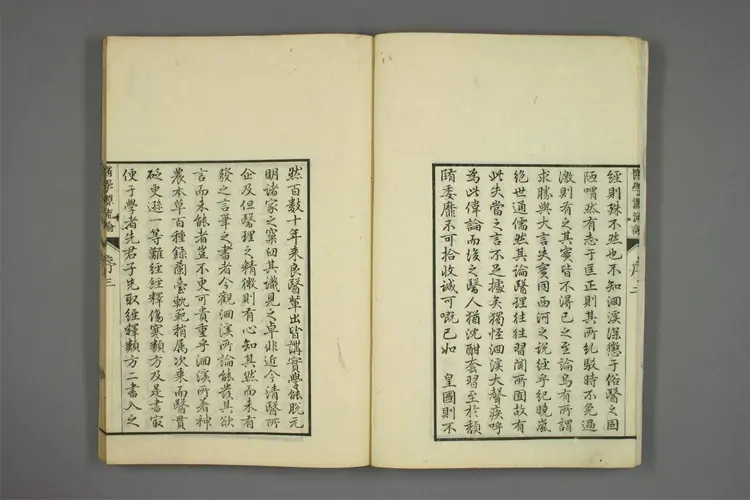 經則殊不然也不知洄溪深懲于俗醫之固
陋喟然有志于匡正則其所糺駁時不免過
激則有之其實皆不得已之至論烏有所謂
求勝與大言失實固西河之說經乎紀曉嵐
絕世通儒然其論醫理往往習聞所囿故有
此失當之言不足據矣獨怪洄溪大聲疾呼
為此偉論而後之醫人猶沈酣套習至於頹
隋委靡不可拾收誠可嘅已如 皇國則不
醫學源流論 序二
然百數十年來良醫輩出皆講實學能脫元
明諸家之窠臼其識見之卓非近今清醫所
企及但醫理之精微則有心知其然而未有
發之言筆之書者今觀洄溪所論能發其欲
言而未能者豈不更可貴重乎洄溪所著神
農本草百種錄蘭臺軌範稍屬次乘而醫貫
砭更遜一等難經經釋傷寒類方及是書最
便于學者先君子先取經釋類方二書入之
醫學源流論 序三